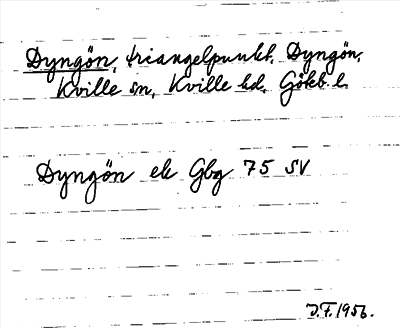 Dyngön, triangelpunkt, Dyngön,
Kville sn, Kville hd. Götb. l.
Dyngön ek Gbg 75 SV
J.F. 1956.